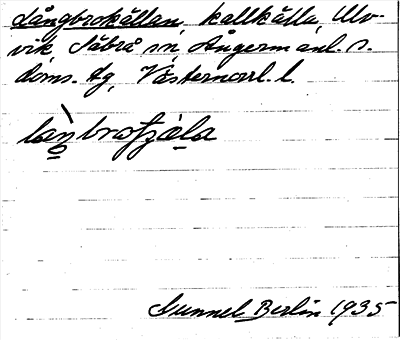 Långbrokällan, kallkälla, Ulv-
vik Säbrå sn, Ångermanl. s.
doms. tg, Västernorrl. l.
làŋbrofjäla
Gunnel Berlin 1935